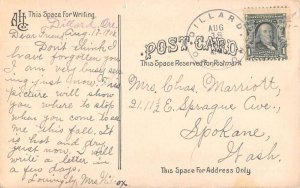 This Space For Writing.
Dillard, Ore.
Dear friend, Aug. 17, 1908
Don't think I
have forgotten you
I am very busy sew-
ing just now. This
picture will show
you where to stop
when you come to see
me this fall. It
is hot and dry
just now. I will
write a letter in
a few days.
Lovingly, Mrs
DILLARD
AUG
18
POST CARD
This Space Reserved For Postmark
Mrs Chas. Merritt,
21.11½ E. Sprague Ave.,
Spokane,
Wash.
This Space For Address Only.